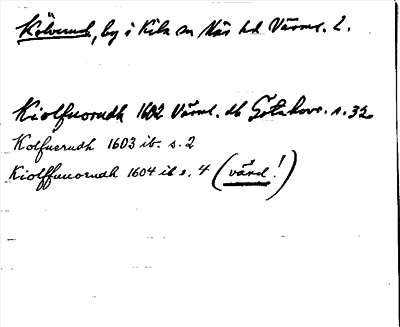 Kölverud, by i Kila sn Näs hd Värml. l.
Kiolfuorudh 1602 Värml. db Götzhove. s. 32
Kolfuerudh 1603 ib. s. 2
Kiolffuuorudh 1604 ib s. 4 (värd!)